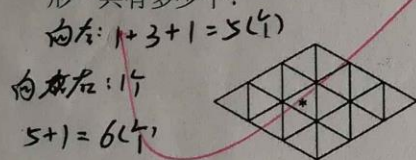 形一共有多少个?
向左:1+3+1=5(个)
向右:1个
5+1=6(个)
*